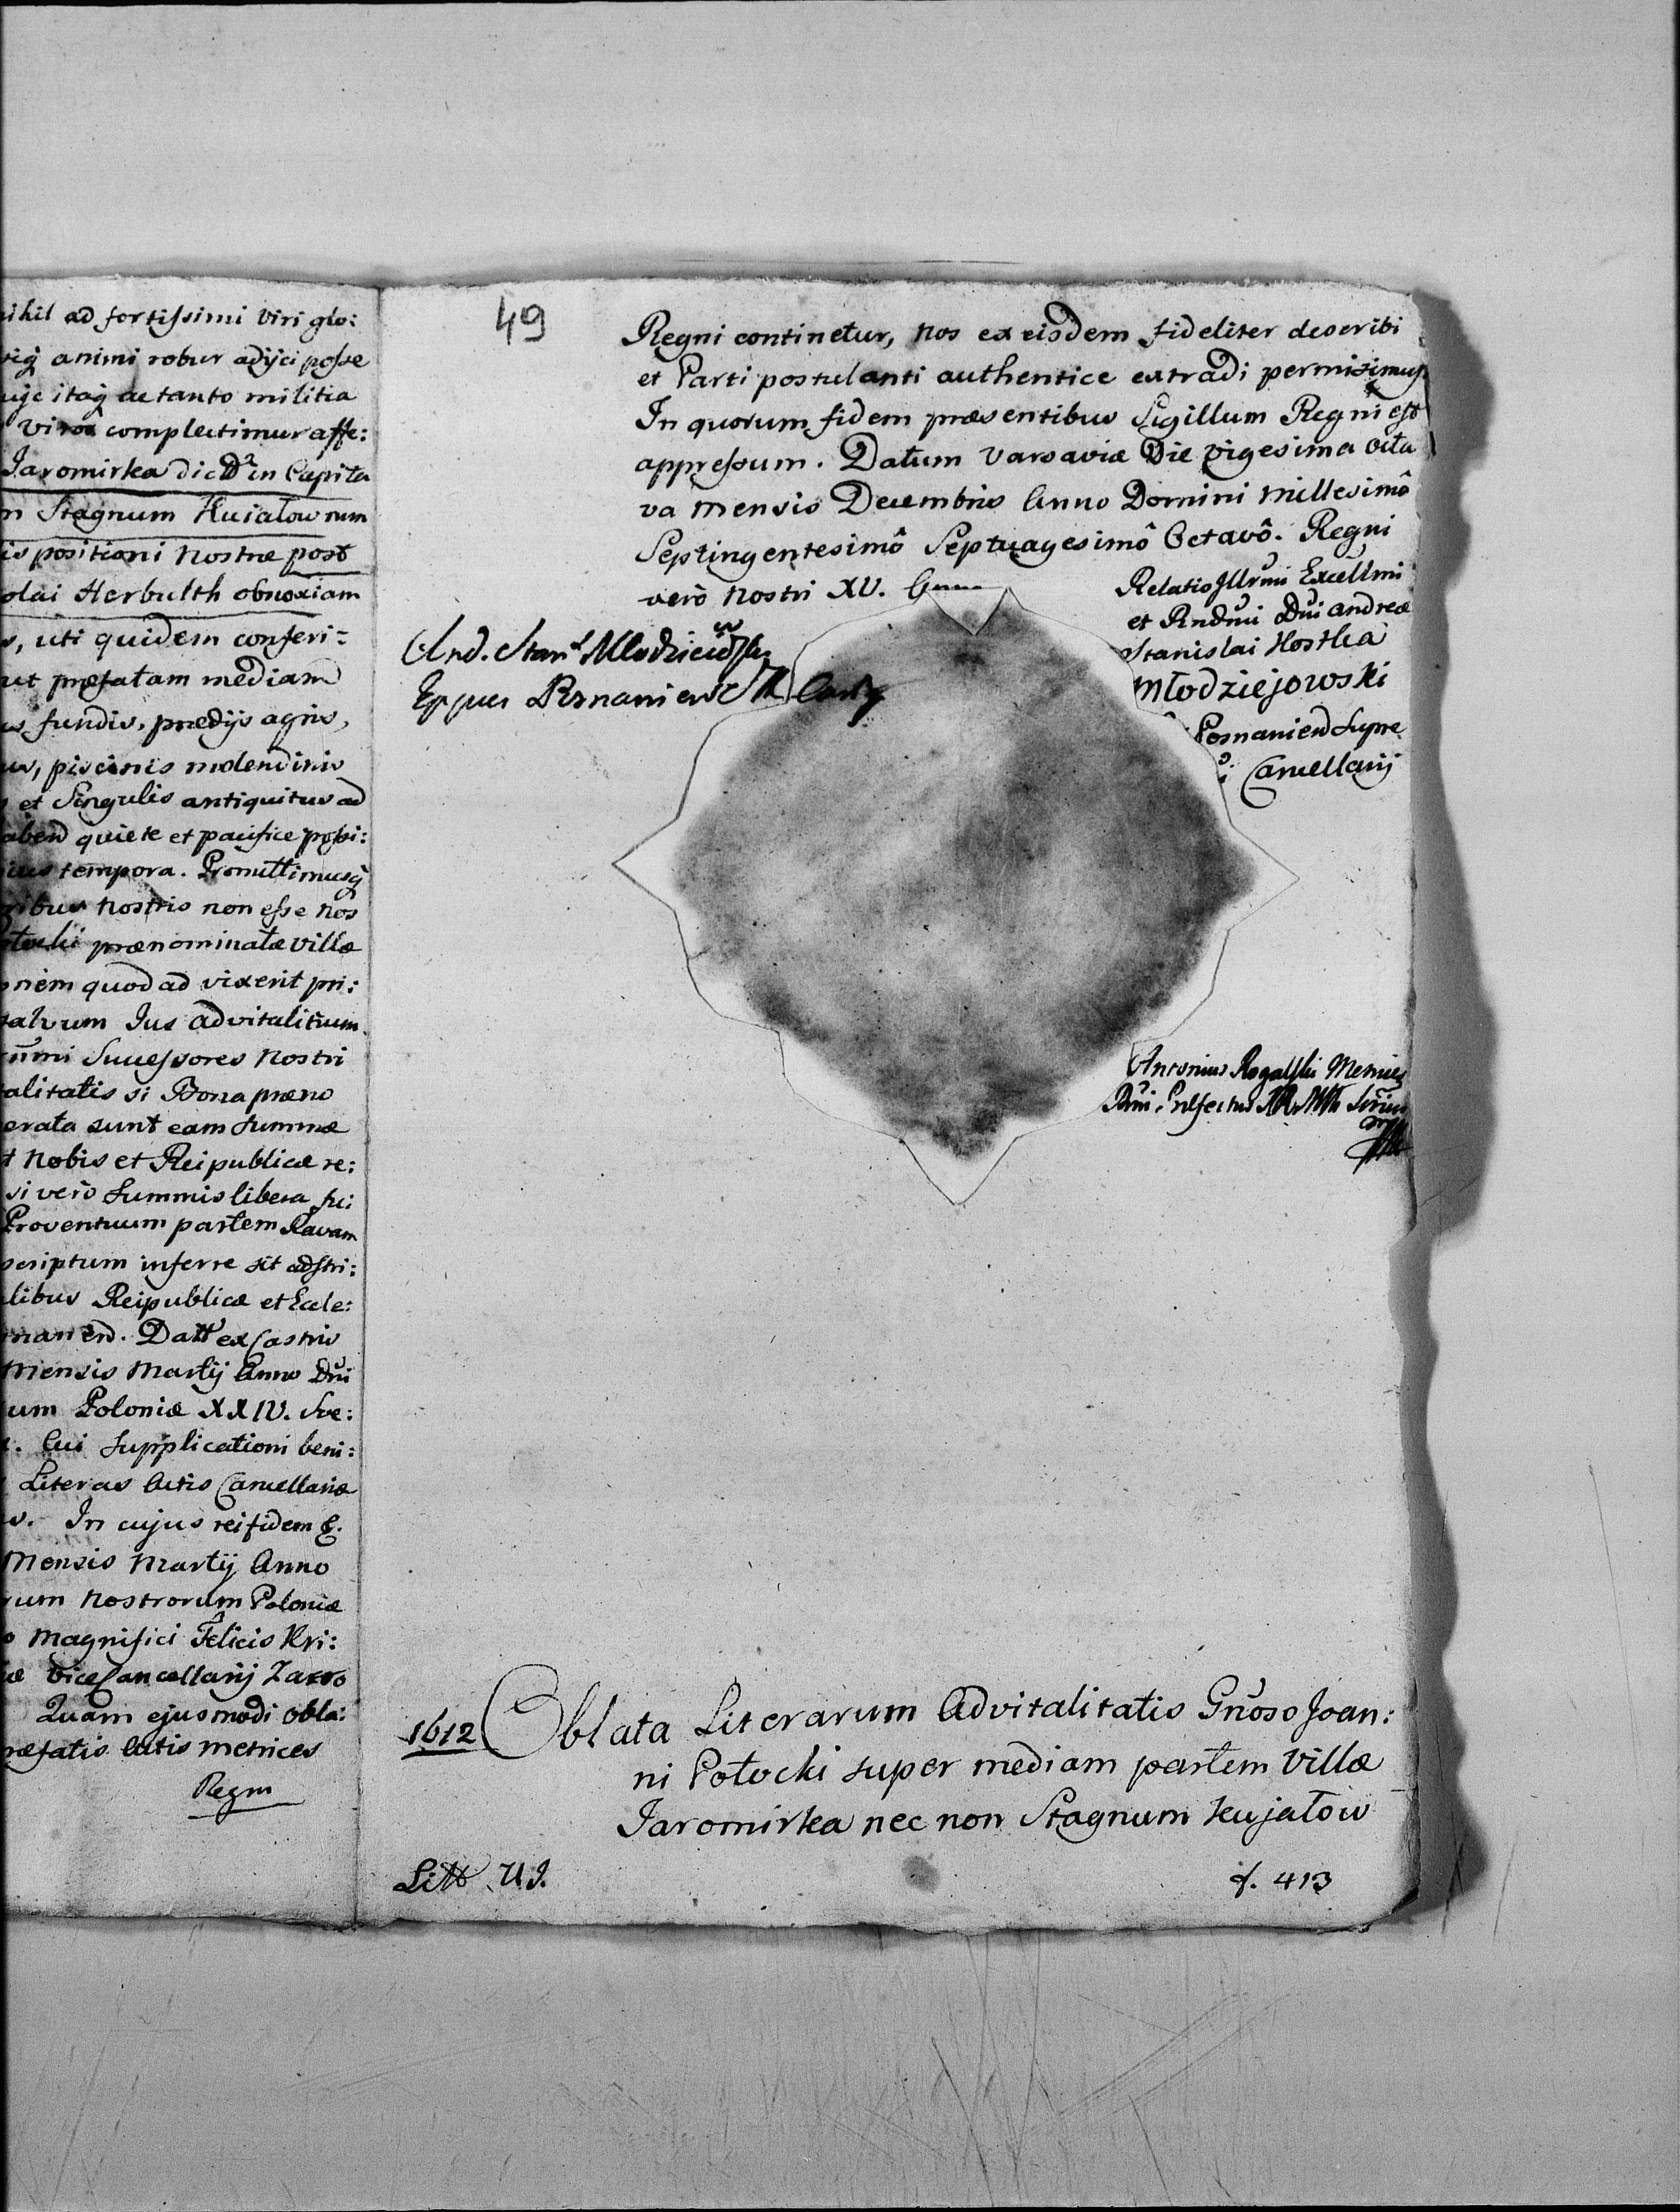 ihil ad fortissimi Viri glo:
animi robur adijci posse
itaq de tanto militia
Viros complectimur affe:
Jaromirka dict in Capita
n Stagnum Kuiatow num
is positioni Nostræ post
olai Herbulth obnoxiam
s, uti quidem conferi=
ut præfatam mediam
fundis, prædijs agris,
piscinis molendinis
et Singulis antiquitus ad
abend quiete et pacifice possi:
tempora. Promittimusq
ribus Nostris non esse Nos
prænominatæ Villæ
onem quod ad vixerit pri:
salvum Jus advitalitium.
Sucessores Nostri
alitatis si Bona præno
erata sunt eam Summæ
t Nobis et Reipublicæ re:
si verò Summis libera fu:
Proventuum partem Ravam
scriptum inferre sit adstri:
libus Reipublicæ et Eccle:
manend. Datt ex Castris
Mensis Martij Anno Dni
um Poloniæ XXIV. Sve:
Cui Supplicationi beni:
Literas Actis Cancellariæ
In cujus rei fidem &.
Mensis Martij Anno
rum Nostrorum Poloniæ
o Magnifici Felicis Kri:
æ ViceCancellarij
Quam ejusmodi obla:
ræfatis Actis Metrices
Regni
49
Regni continetur, Nos ex eisdem fideliter describi
et Parti postulanti authentice extradi permisimus.
In quorum fidem præsentibus Sigillum Regni est
appressum. Datum Varsaviæ Die vigesima octa
va Mensis Decembris Anno Domini Millesimô
Septingentesimô Septuagesimô Octavô. Regni
verò Nostri XV. Anno
Relatio Illrmi Excellmi
et Rndmi Dni Andreæ
Stanislai Kostka
Młodziejowski
Posnaniend Supre
Cancellarij
And. Stans Młodzieiowski
Eppus Posnaniensis
Antonius Rogalski Metrices
Rni. Præfectus
1612 Oblata Literarum Advitalitatis Gnoso Joan:
ni Potocki super mediam partem Villæ
Jaromirka nec non Stagnum Kujatow
Litt U.J.
f. 413